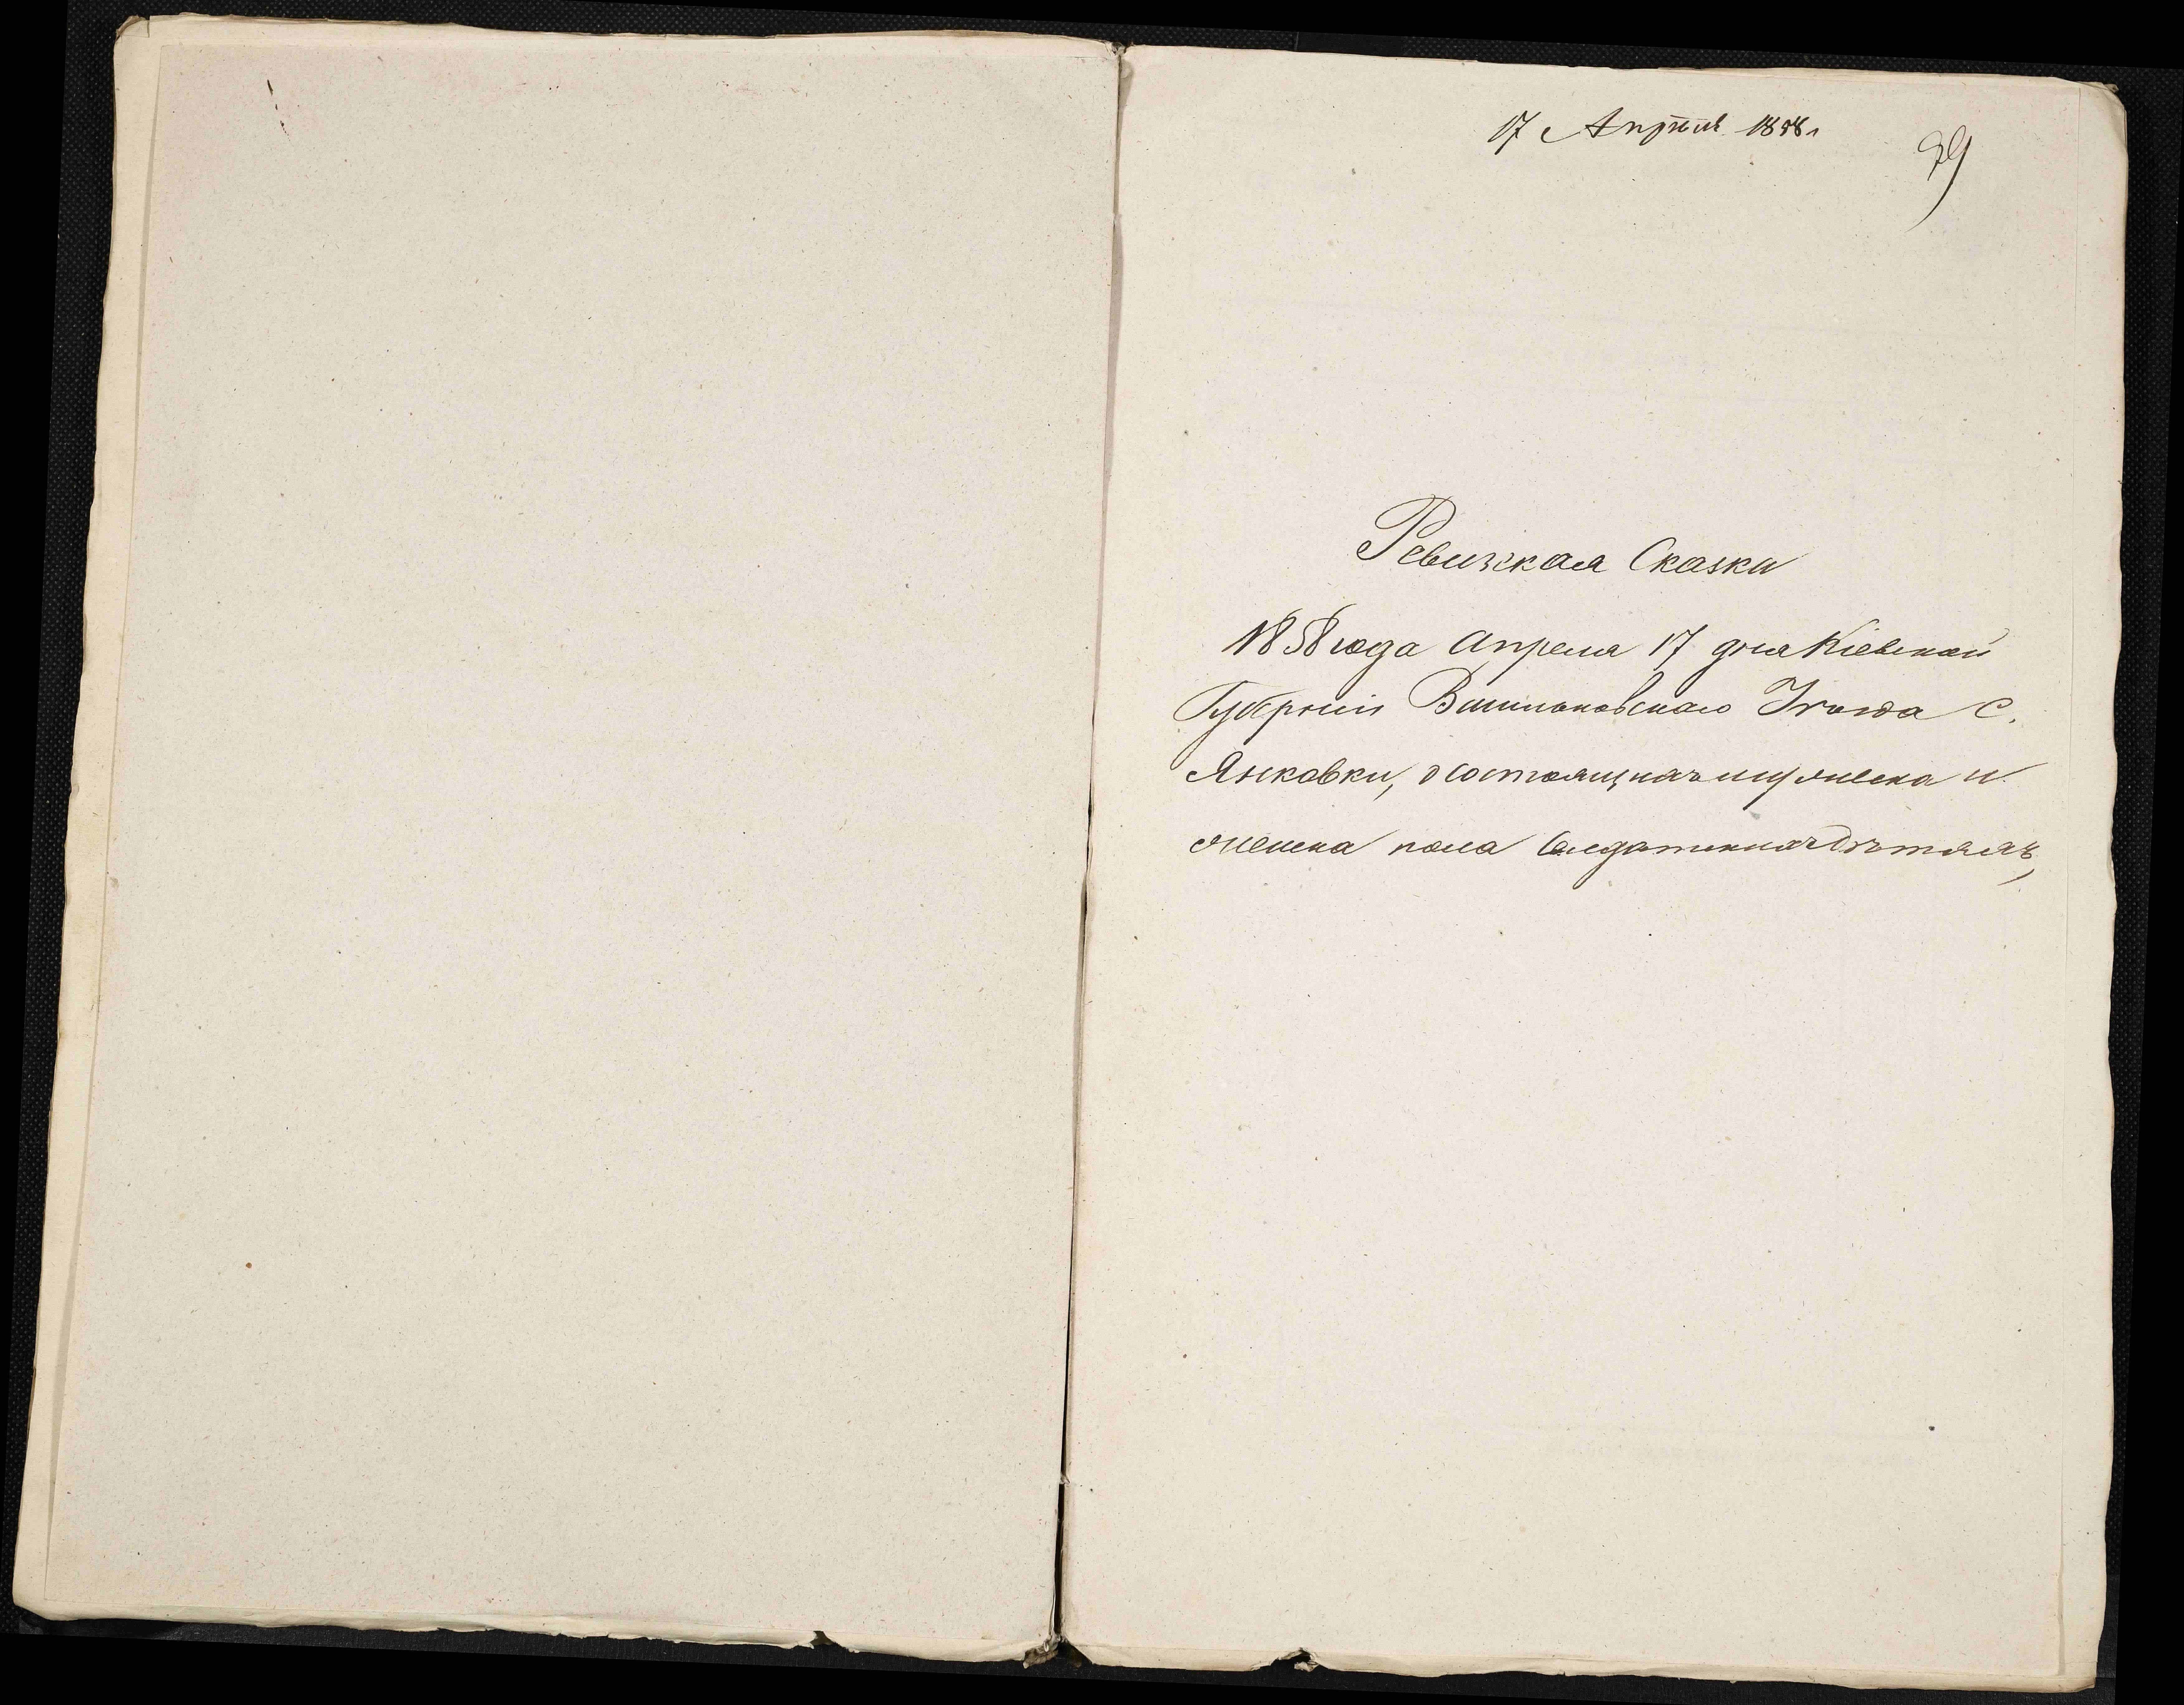 17 Апрѣля 1858 г
29
Ревизкая Сказки
1858 года Апреля 17 дня Кіевской
Губерніи Васильковскаго Уѣзда с.
Янковки, о состоящихъ мужеска и
женска пола Солдатскихъ дѣтяхъ,